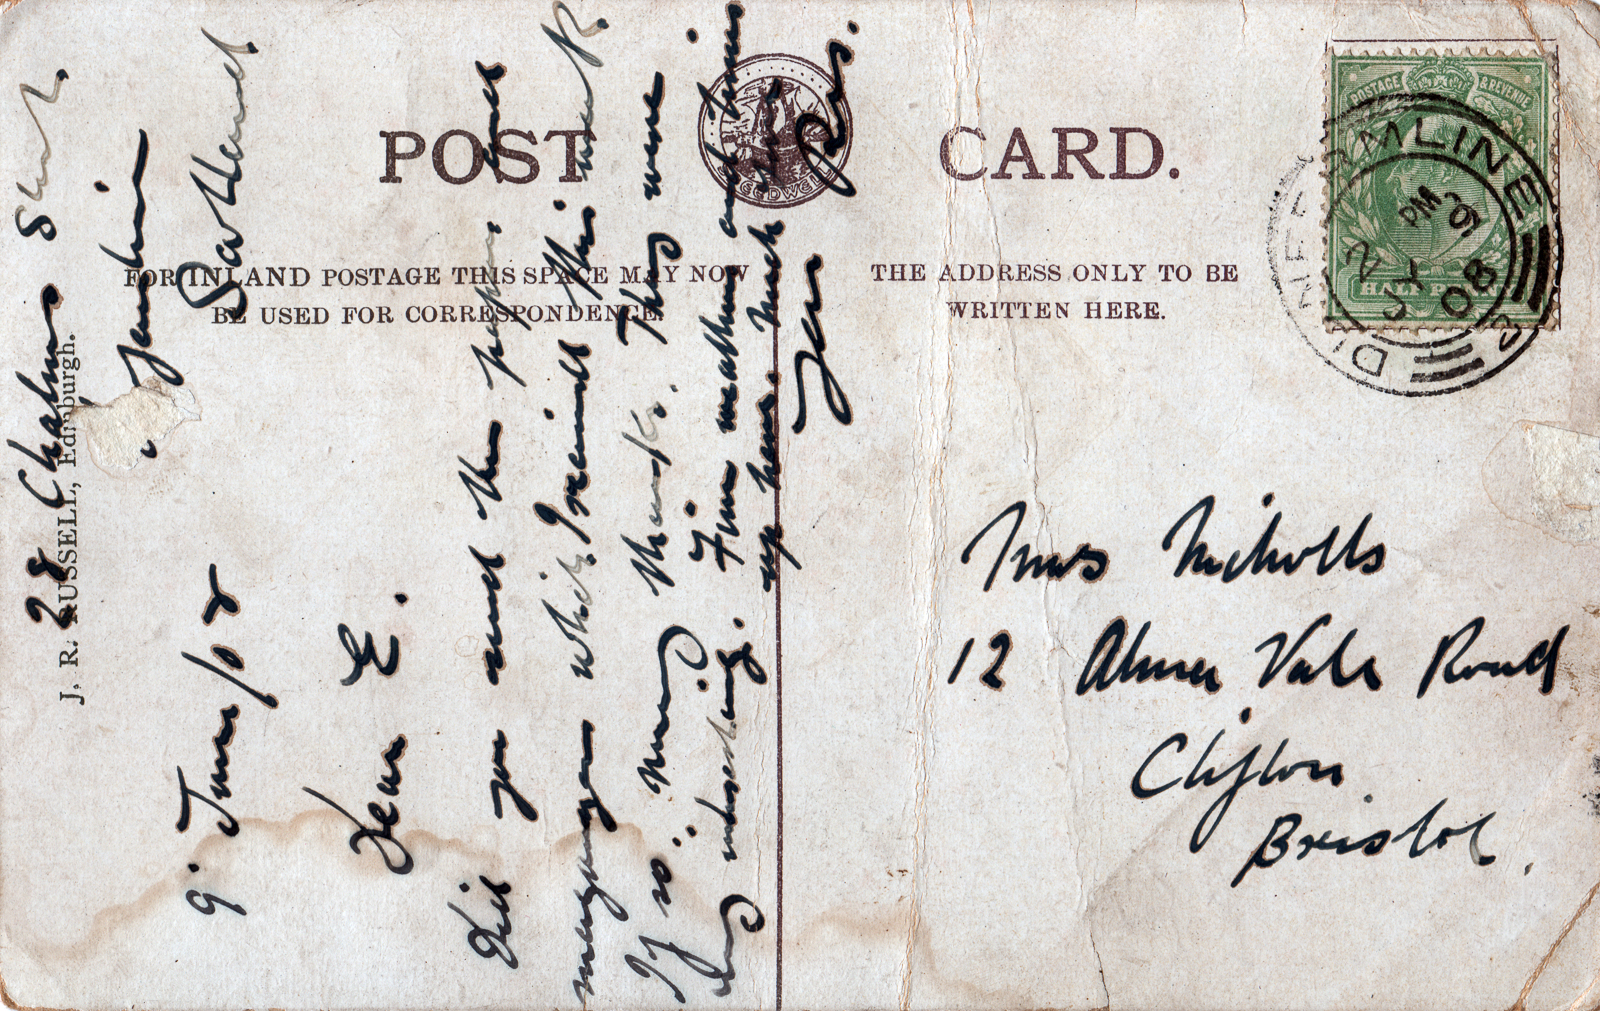 POST CARD.
SPEEDWELL
FOR INLAND POSTAGE THIS SPACE MAY NOW
BE USED FOR CORRESPONDENCE.
THE ADDRESS ONLY TO BE
WRITTEN HERE.
POSTAGE & REVENUE
HALF PENNY
DUNFERMLINE
PM
2 JY
08
J. R. RUSSELL, Edinburgh.
28 Chalmers Street.
9. June/08
Saturday
Dear E.
Did you send the papers and
magazines which I received this week.
If so Many thanks. They were
very interesting. Fine weather and
up here. Much
Yours
Miss Nicholls
12 Alma Vale Road
Clifton
Bristol.